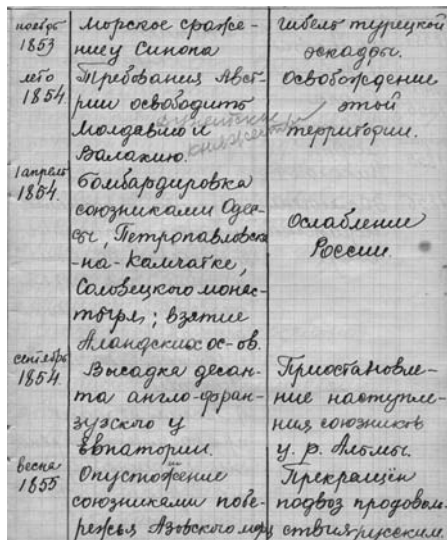 ноябрь
1853
Морское сраже-
ние у Синопа
Гибель турецкой
эскадры.
лето
1854.
Требования Авст-
рии освободить
Молдавию и
Валахию.
дунайские
княжества
Освобождение
этой
территории.
1 апрель
1854.
Бомбардировка
союзниками Одес-
сы, Петропавловска
-на-Камчатке,
Соловецкого монас-
тыря; взятие
Аландских ос-ов.
Ослабление
России.
сентябрь
1854.
Высадка десан-
та англо-фран-
зузского у
Евпатории.
Приостановле-
ние наступле-
ния союзников
у р. Альмы.
весна
1855
Опустожение
союзниками побе-
режья Азовского моря
Прекращён
подвоз продоволь
ствия русским